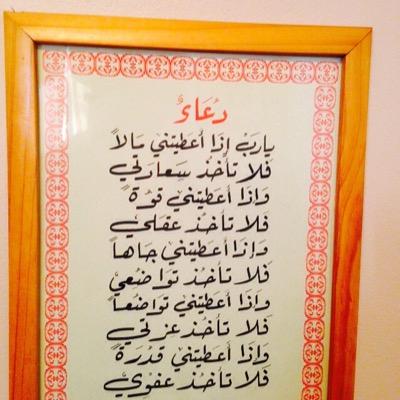 دُعَاءُ
يارَبْ إِذَا أَعطَيتَني مَالاً
فَلا تأخُذْ سَعادَتي
وَإذَا أَعطَيتَني قوّةً
فَلا تأخُذْ عَقلي
وَإذَا أَعطَيتَني جَاهاً
فَلا تَأخُذْ تَوَاضُعيْ
وَإذَا أعطَيتَني تواضُعاً
فَلا تَأخُذْ عِزتي
وَإذَا أعطَيتَني قُدرَةً
فَلا تأخذْ عَفوي